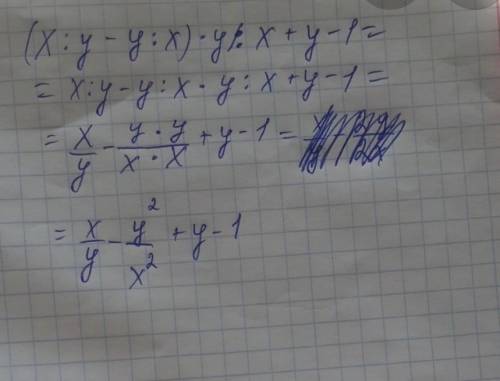 (x : y - y : x) · y : x + y - 1 =
= x : y - y : x · y : x + y - 1 =
= x/y - y · y / x · x + y - 1 =
= x/y - y²/x² + y - 1